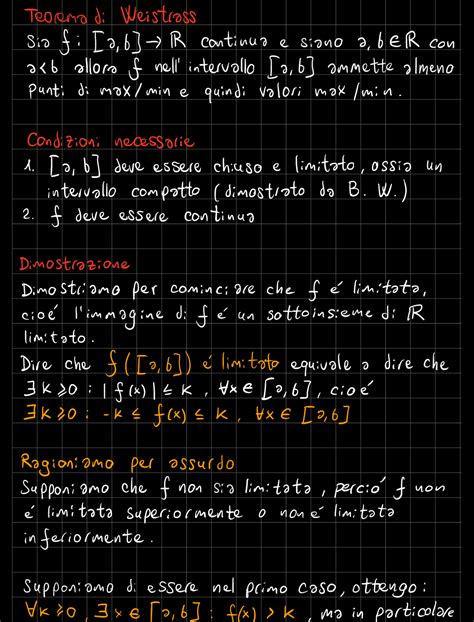 Teorema di Weistrass
Sia f : [a,b] → ℝ continua e siano a, b ∈ ℝ con
a<b allora f nell'intervallo [a,b] ammette almeno
punti di max/min e quindi valori max/min.
Condizioni necessarie
1. [a, b] deve essere chiuso e limitato, ossia un
intervallo compatto (dimostrato da B. W.)
2. f deve essere continua
Dimostrazione
Dimostriamo per cominciare che f é limitata,
cioé l'immagine di f é un sottoinsieme di ℝ
limitato.
Dire che f([a,b]) é limitato equivale a dire che
∃k⩾0 : |f(x)| ≤ k , ∀x ∈ [a,b], cioé
∃k⩾0 : -k ≤ f(x) ≤ k , ∀x ∈ [a,b]
Ragioniamo per assurdo
Supponiamo che f non sia limitata, perció f non
é limitata superiormente o non é limitata
inferiormente.
Supponiamo di essere nel primo caso, ottengo:
∀k⩾0, ∃x∈[a,b] : f(x) > k , ma in particolare